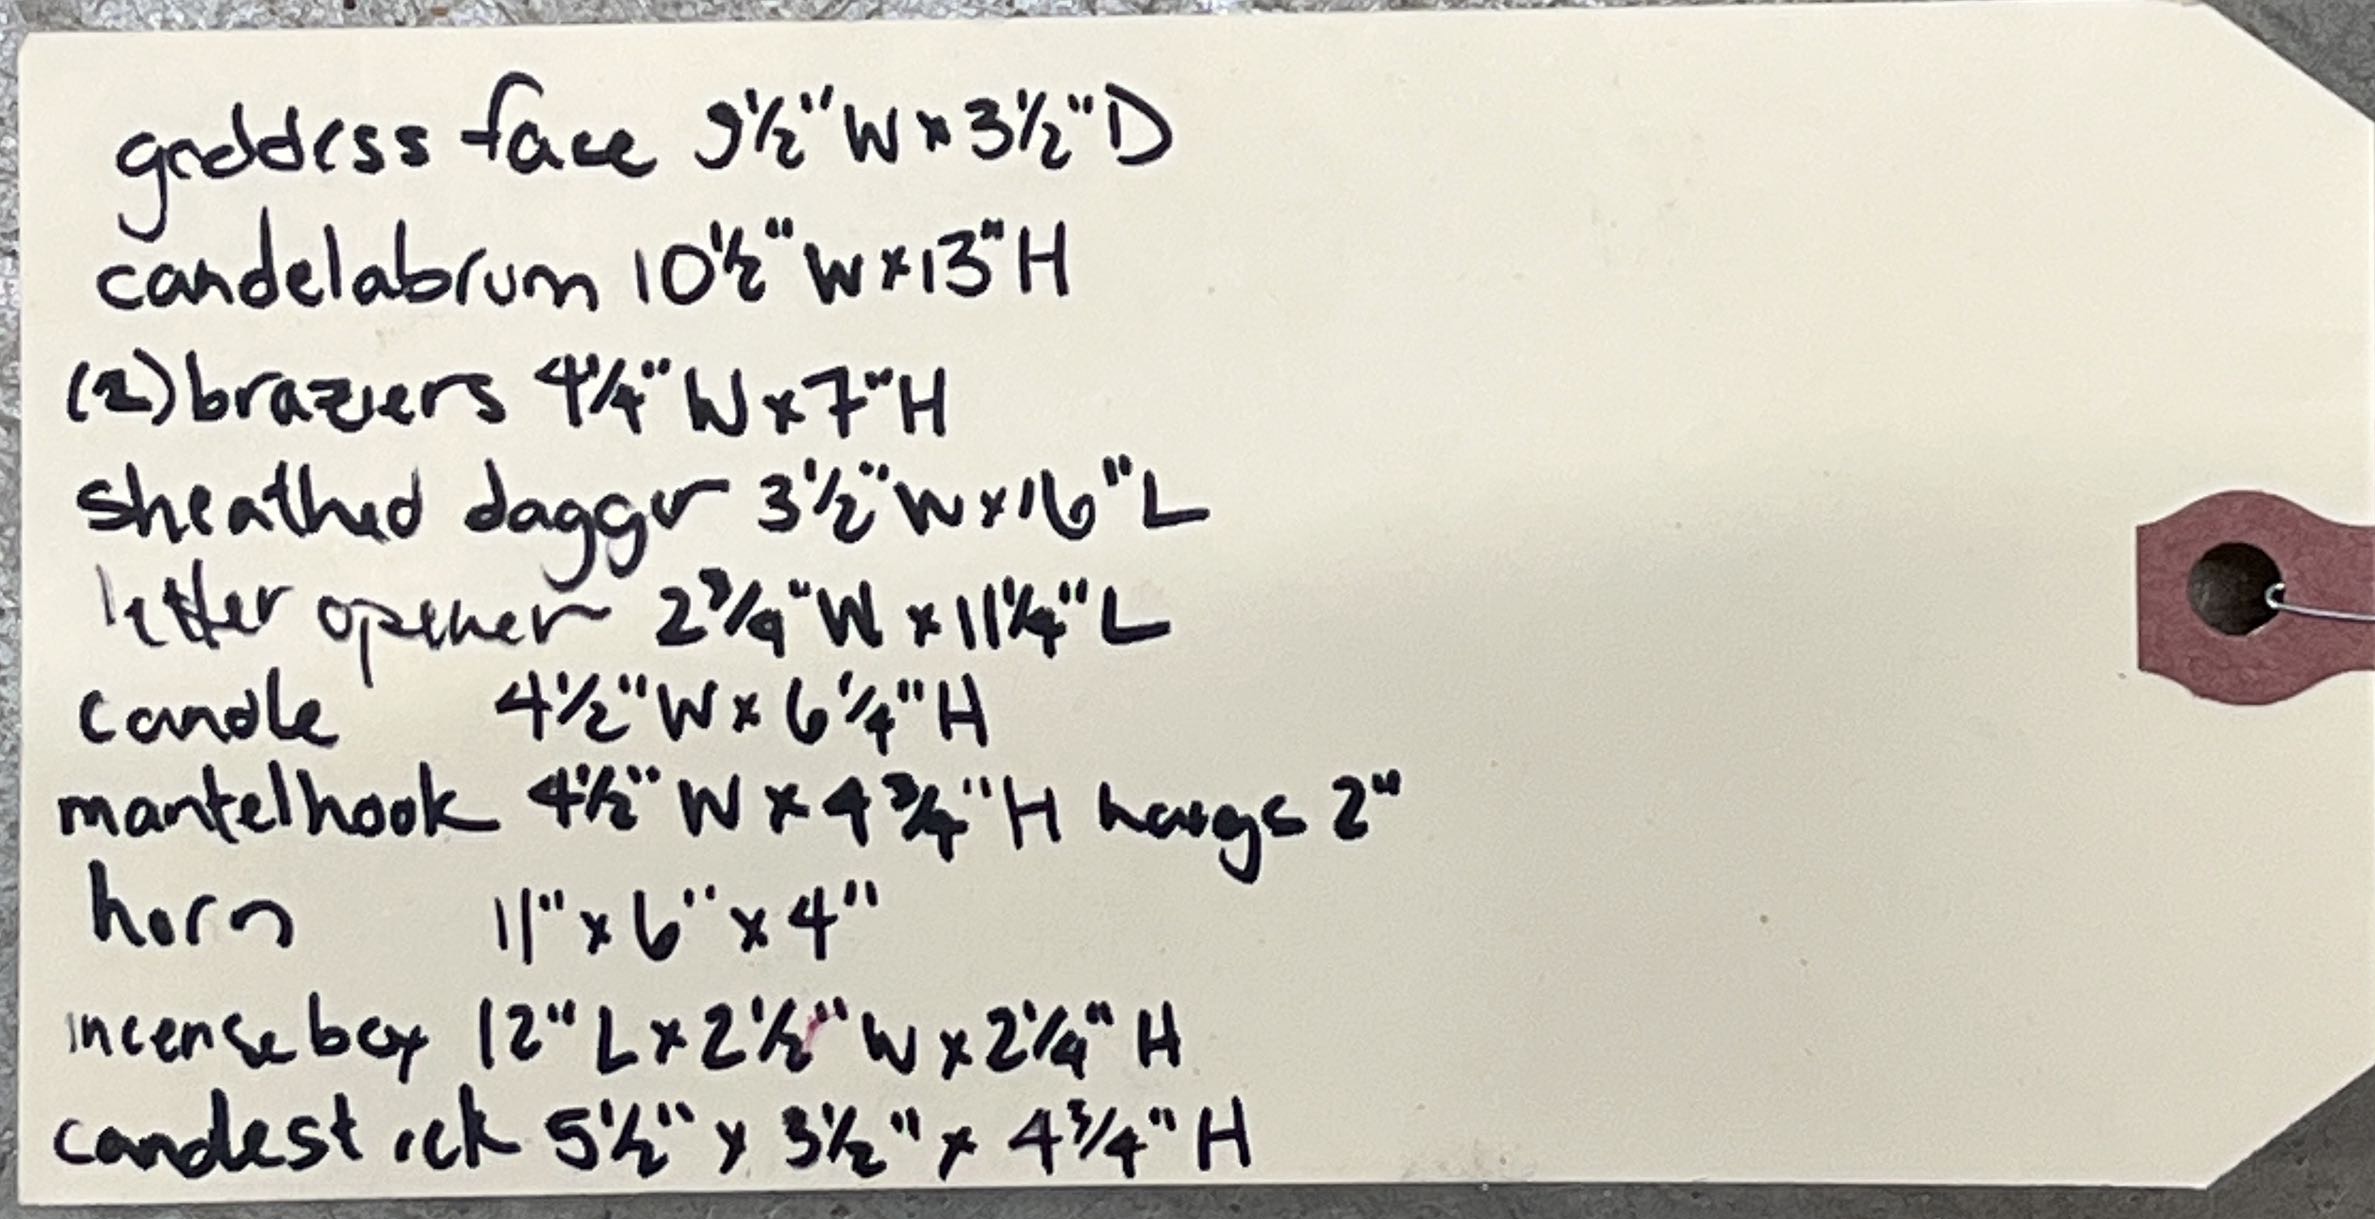 goddess face 9½" W x 3½" D
candelabrum 10½" W x 13" H
(2) braziers 4¼" W x 7" H
sheathed dagger 3½" W x 16" L
letter opener 2¾" W x 11¼" L
candle 4½" W x 6¼" H
mantelhook 4½" W x 4¾" H hangs 2"
horn 11" x 6" x 4"
incense box 12" L x 2½" W x 2¼" H
candlestick 5½" x 3½" x 4¾" H